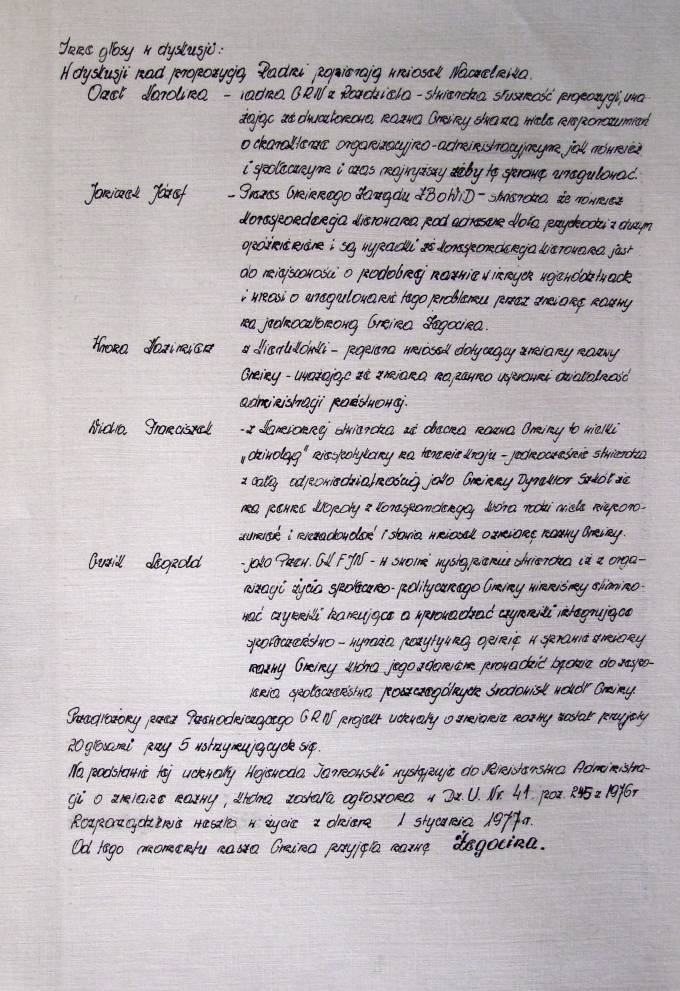 Inne głosy w dyskusji:
W dyskusji nad propozycją Radni popierają wniosek Naczelnika.
Orzeł Karolina - radna GRN z Rozdziela - stwierdza słuszność propozycji, uwa-
żając że dwuczłonowa nazwa Gminy stwarza wiele nieporozumień
o charakterze organizacyjno-administracyjnym jak również
i społecznym i czas najwyższy żeby tę sprawę uregulować.
Janiczek Józef - Prezes Gminnego Zarządu ZBoWiD - stwierdza że również
korespondencja kierowana pod adresem koła przychodzi z dużym
opóźnieniem i są wypadki że korespondencja kierowana jest
do miejscowości o podobnej nazwie w innych województwach
i wnosi o uregulowanie tego problemu przez zmianę nazwy
na jednoczłonową Gmina Żegocina.
Wnora Kazimierz z Bieńkówki - popiera wniosek dotyczący zmiany nazwy
Gminy - uważając że zmiana na pewno usprawni działalność
administracji państwowej.
Widła Franciszek - z Kamionnej stwierdza że obecna nazwa Gminy to wielki
„dziwoląg” niespotykany na terenie kraju - jednocześnie stwierdza
z całą odpowiedzialnością jako Gminny Dyrektor Szkół że
ma pewne kłopoty z korespondencją, która rodzi wiele nieporo-
zumień i niezadowoleń i stawia wniosek o zmianę nazwy Gminy.
Guzik Leopold - jako Przew. GK FJN - w swoim wystąpieniu stwierdza iż z orga-
nizacji życia społeczno-politycznego Gminy winniśmy elimino-
wać czynniki hamujące a wprowadzać czynniki integrujące
społeczeństwo - wyraża pozytywną opinię w sprawie zmiany
nazwy Gminy która jego zdaniem prowadzić będzie do zespo-
lenia społeczeństwa poszczególnych środowisk wokół Gminy.
Przedłożony przez Przewodniczącego GRN projekt uchwały o zmianie nazwy został przyjęty
20 głosami przy 5 wstrzymujących się.
Na podstawie tej uchwały Wojewoda Tarnowski występuje do Ministerstwa Administra-
cji o zmianę nazwy, która została ogłoszona w Dz. U. Nr. 41. poz. 245 z 1976r
Rozporządzenie weszło w życie z dniem 1 stycznia 1977r.
Od tego momentu nasza Gmina przyjęła nazwę Żegocina.